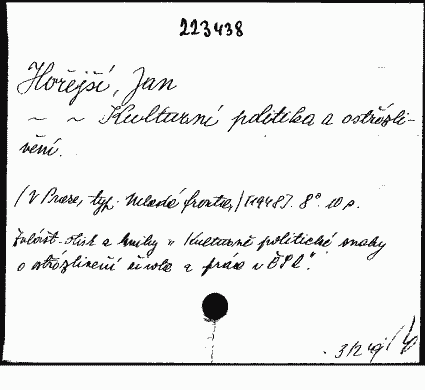 223438
Hořejší, Jan
~ ~ Kulturní politika a ostřízli-
vění.
/V Praze, typ. Mladá fronta,/ [1948]. 8°. 10 s.
otisk z knihy „Kulturně politické snahy
o ostřízlivění a práv v ČSR".
3/2 49